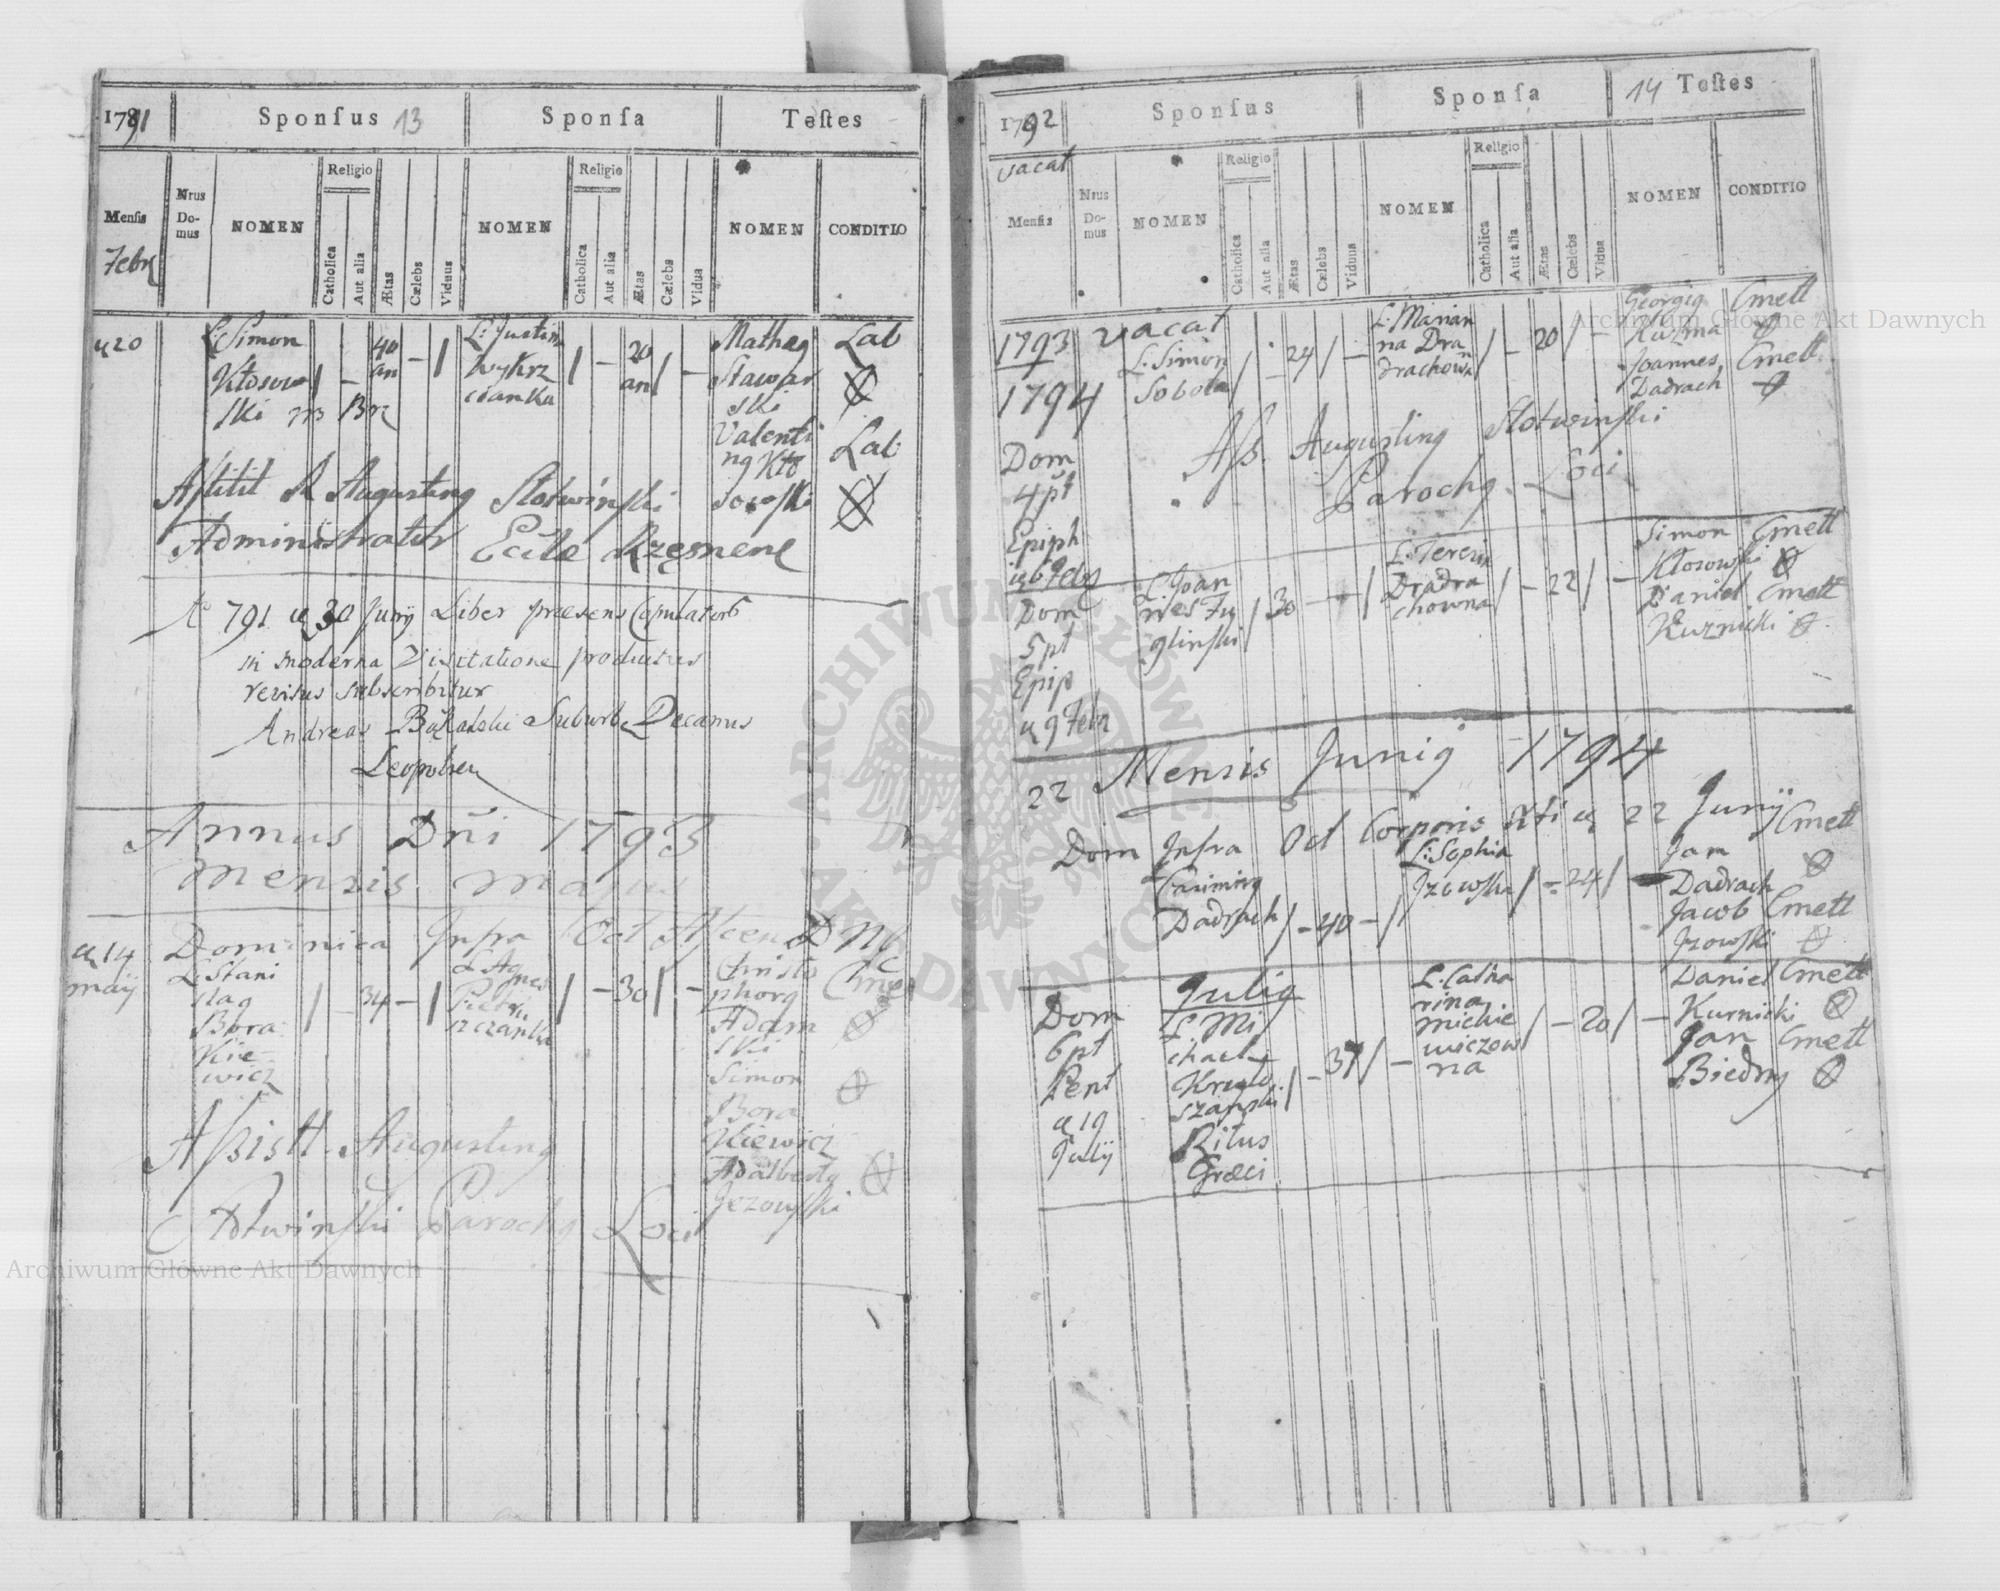 1791
Sponſus 13
Sponſa
Teſtes
Menſis
Nrus Do-mus
NOMEN
Religio
Catholica
Aut alia
Ætas
Cælebs
Viduus
NOMEN
Religio
Catholica
Aut alia
Ætas
Cælebs
Vidua
NOMEN
CONDITIO
Febr
20
L: Simon
Kłosow
ski
40
an
L: Justin
20
an
Stawar
ski
Valenti
ng Kło
Lab
Lab
Astitit R Augusting Slotwinski
Administrator Eccle
791 30 Junÿ Liber praesens Copulatorũ
in moderna Visitatione productus
revisus subscribitur
Andreas Suburb Decanus
Leopolien
Annus Dñi 1793
Mensis Majus
14
maij
Dominica Infra Oct Ascen Dñi
L: Stani
slag
Bora
kie
wicz
34
L: Agnes
30
Christo
phorg
Adam
ski
Simon
Bora
kiewicz
Adalbertg
Jezowski
Assistt. Augusting
Slotwinski Parochg Loci
1792
Sponſus
Sponſa
14 Teſtes
vacat
Menſis
Nrus Do-mus
NOMEN
Religio
Catholica
Aut alia
Ætas
Cælebs
Viduus
NOMEN
Religio
Catholica
Aut alia
Ætas
Cælebs
Vidua
NOMEN
CONDITIO
1793 vacat
1794
Dom
4 pt
Epiph
L: Simon
Sobota
24
L: Marian
na
20
Georgig
Kuzma
Joannes
Dadrach
Cmett
Cmett
Ass. Augusting Slotwinski
Parochg Loci
Dom
5 pt
Epip
9 Febr
L: Joan
nes
glinski
30
chowna
22
Simon
Kłosowski
Daniel
Kuznicki
Cmett
Cmett
22 Mensis Junig 1794
Dom Infra Oct Corporis Xti 22 Junÿ
Casimirg
Dadrach
40
L: Sophia
Jzowska
24
Jan
Dadrach
Jacob
Jzowski
Cmett
Cmett
Julig
Dom
6 pt
Pent
19
Julij
L: Mi
chael
Ritus
Græci
37
L: Catha
rina
Michie
wiczow
na
20
Daniel
Kurnicki
Jan
Biedny
Cmett
Cmett
Archiwum Główne Akt Dawnych
Archiwum Główne Akt Dawnych
ARCHIWUM GŁÓWNE AKT DAWNYCH